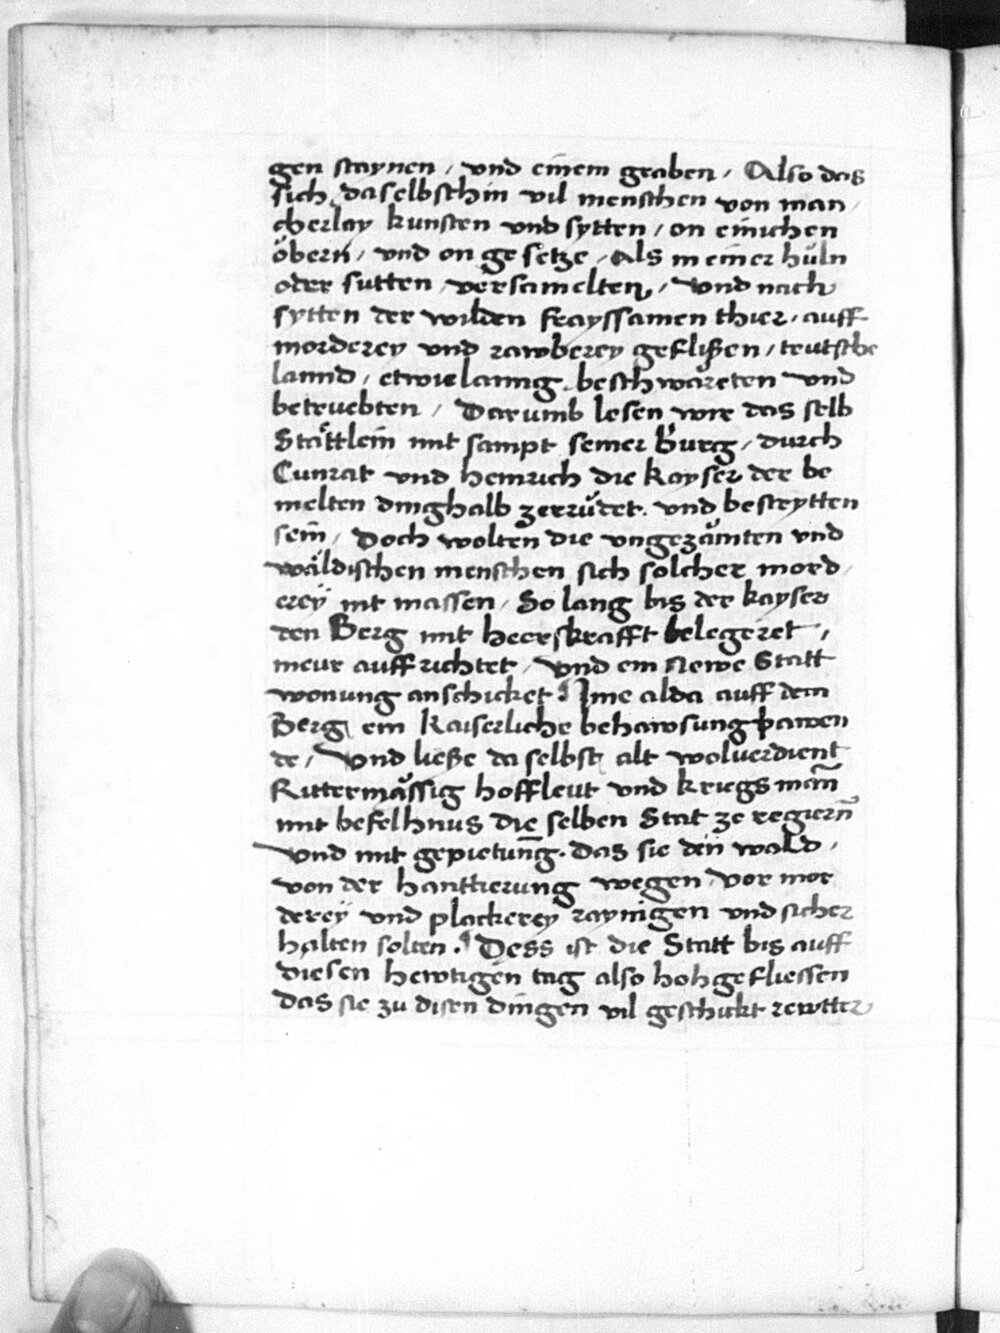 gen staynen / vnd einem graben / Also das
sich daselbsthin vil menschen von man /
cherlay kunsten vnd sytten / on einichen
öbern / vnd on gesetze / Als in einer hüln
oder sutten / versamelten / vnd nach
sytten der wilden frayssamen thier / auff
morderey vnd rawberey geflißen / teutsche
lannd / etwielanng beschwäreten vnd
betruebten / Darumb lesen wir das selb
Stättlein mit sampt seiner Burg / durch
Cunrat vnd heinrich die Kayser der be
melten dinghalb zerrüdet . vnd bestrytten
sein / Doch wolten die vngezämten vnd
wäldischen menschen sich solcher mord /
ereÿ nit massen / So lang bis der kayser
den Berg mit heerskrafft belegeret /
meur auffrichtet / vnd ein newe Statt
wonung anschicket : Ime alda auff dem
Berg ein Kaiserliche behawsung pawen
de / Vnd ließe daselbst alt woluerdient
Rittermässig hoffleut vnd kriegsmān
mit befelhnus die selben Stat ze regiern̄
vnd mit gepietung . das sie den wald /
von der hanttierung wegen / vor mor
dereÿ vnd plackerey raynigen vnd sicher
halten solten . Dess ist die Statt bis auff
diesen hewtigen tag also hohgefliessen
das sie zu disen dingen vil geschickt rewtter